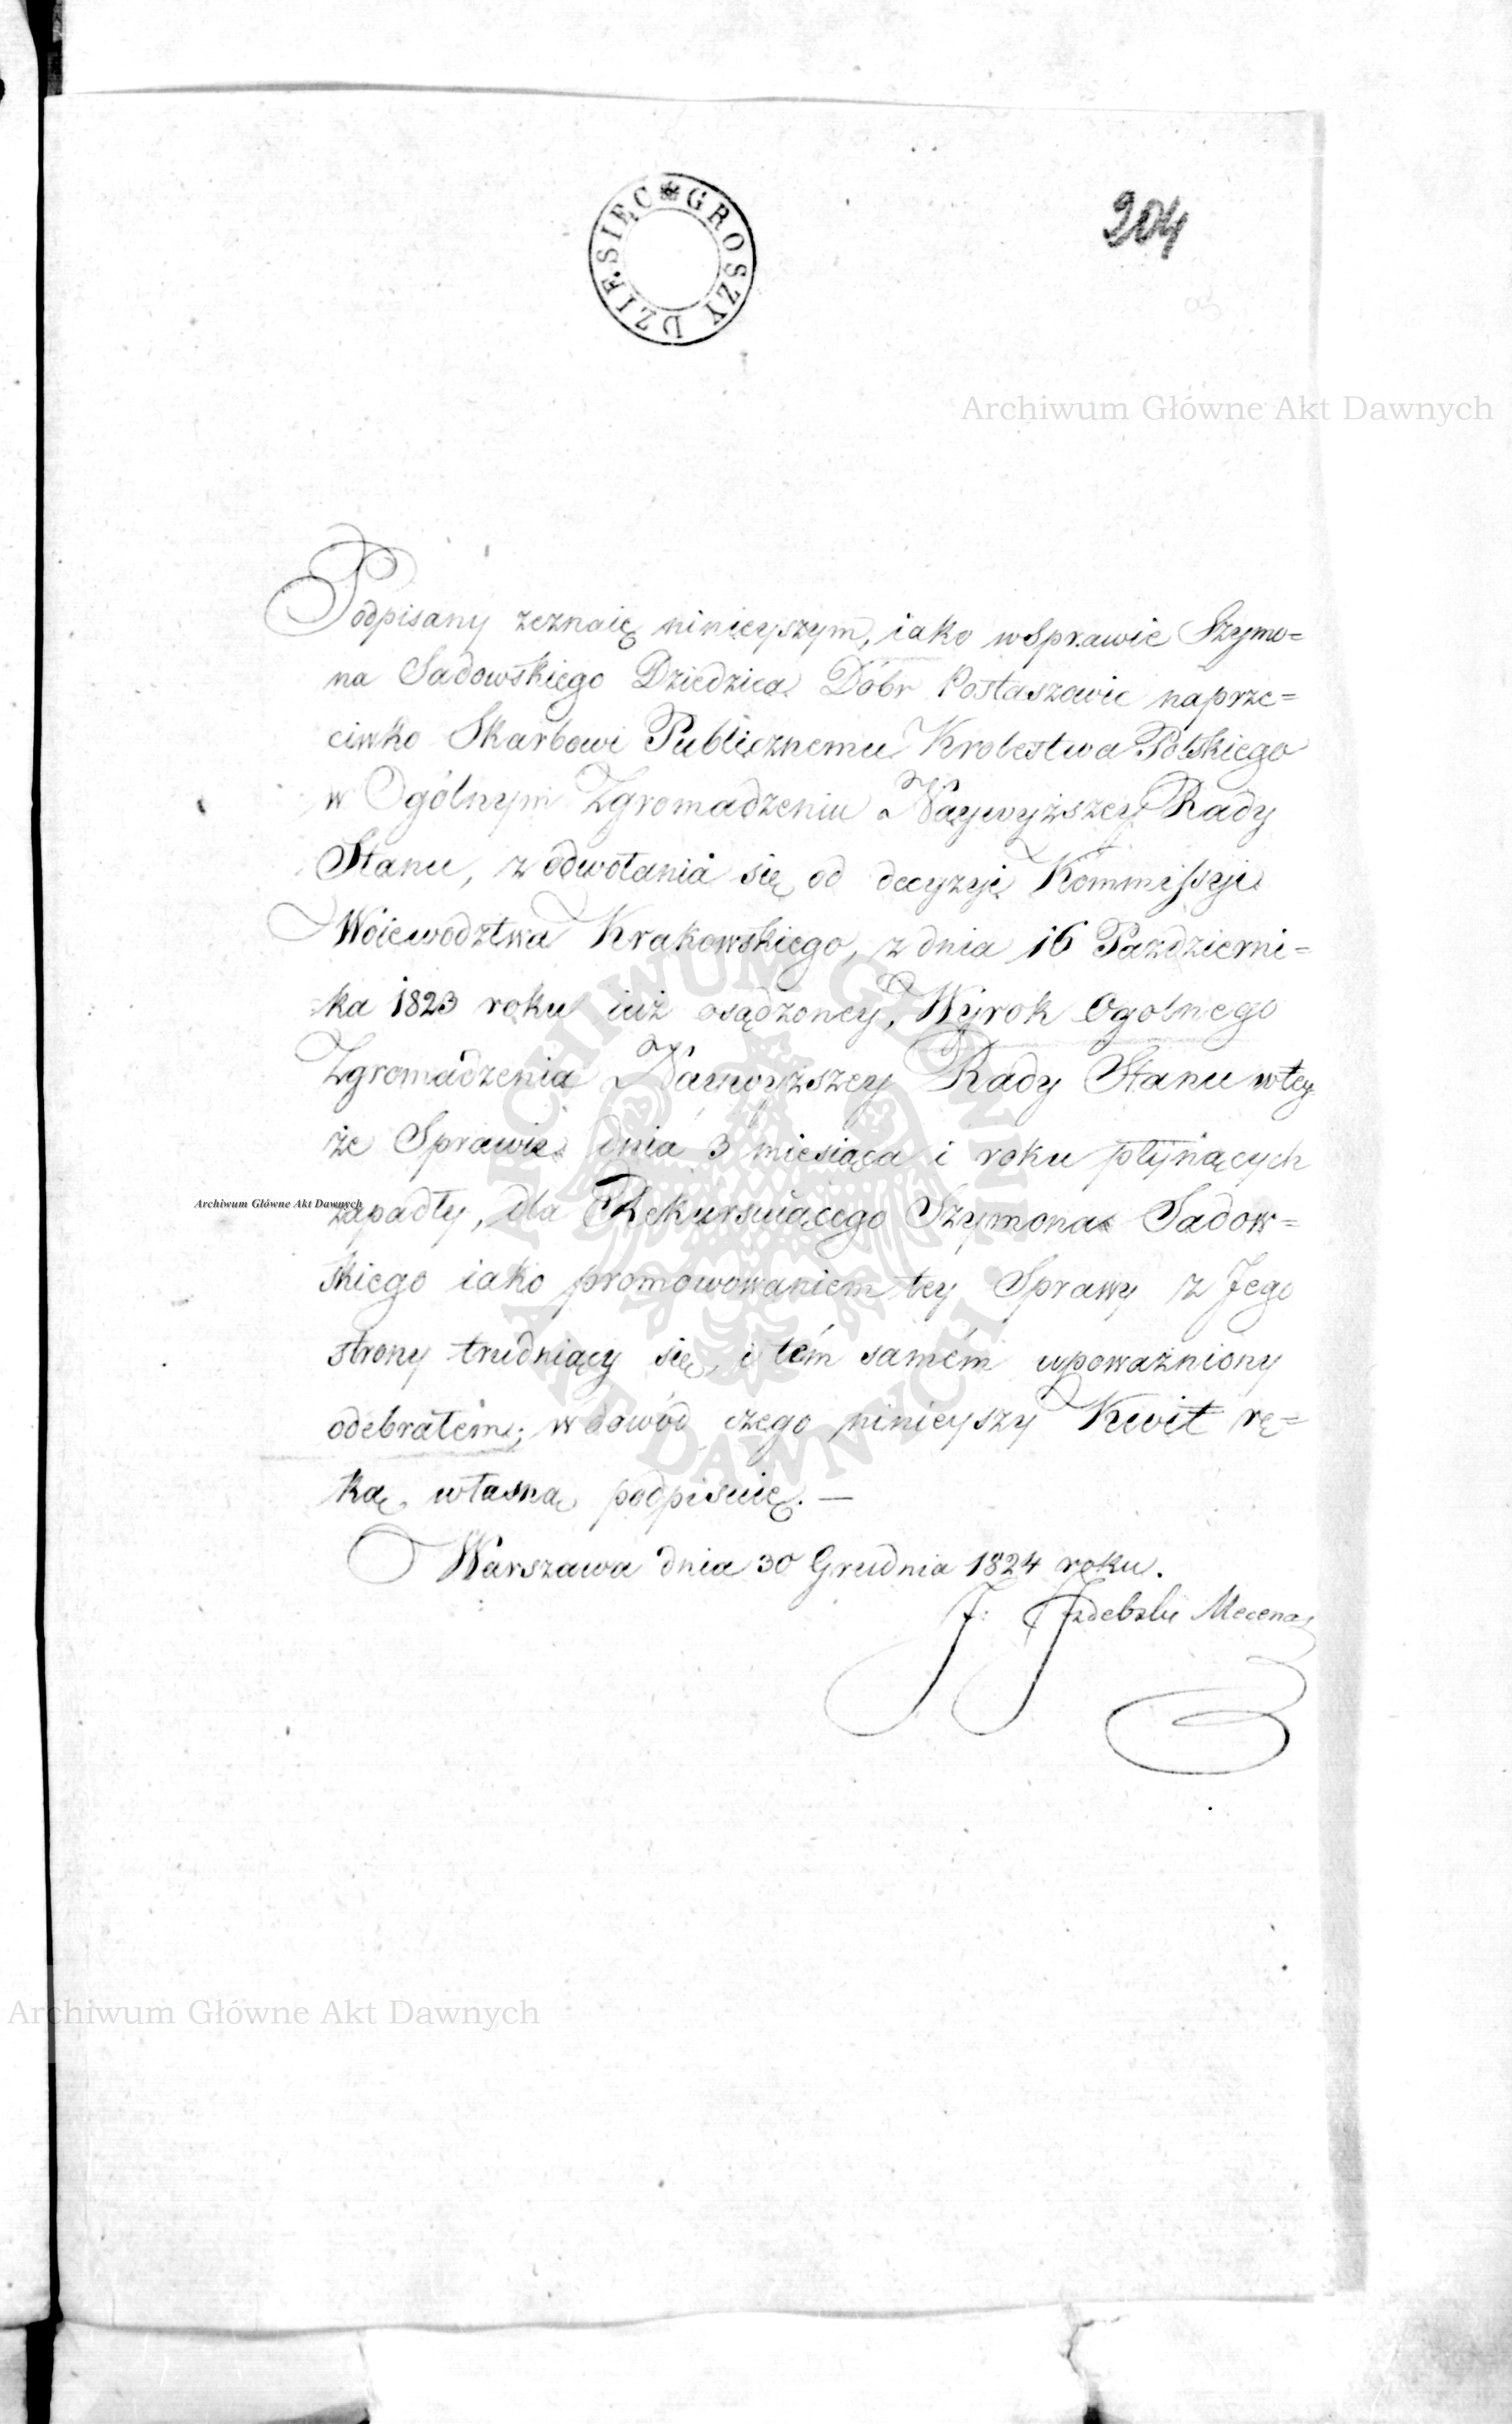 GROSZY DZIESIĘC
204
Archiwum Główne Akt Dawnych
Podpisany zeznaię ninieyszym, iako wSprawie Szymo=
na Sadowskiego Dziedzica Dóbr Postaszowic naprze=
ciwko Skarbowi Publicznemu Krolestwa Polskiego
w Ogólnym Zgromadzeniu Naywyższey Rady
Stanu, z odwołania się od decyzyi Kommissyi
Woiewodztwa Krakowskiego, z dnia 16 Październi=
ka 1823 roku iuż osądzoney, Wyrok Ogolnego
Zgromadzenia Naywyższey Rady Stanu wtey
że Sprawie dnia 3 miesiąca i roku płynących
zapadły, dla Rekursuiącego Szymona Sadow=
skiego iako promowowaniem tey Sprawy z Jego
strony trudniący się, i tém samém upoważniony
odebrałem; w dowód czego ninieyszy Kwit rę=
ką własną podpisuię. —
Warszawa dnia 30 Grudnia 1824 roku.
J: Izdebski Mecenas
Archiwum Główne Akt Dawnych
ARCHIWUM GŁÓWNE AKT DAWNYCH
Archiwum Główne Akt Dawnych